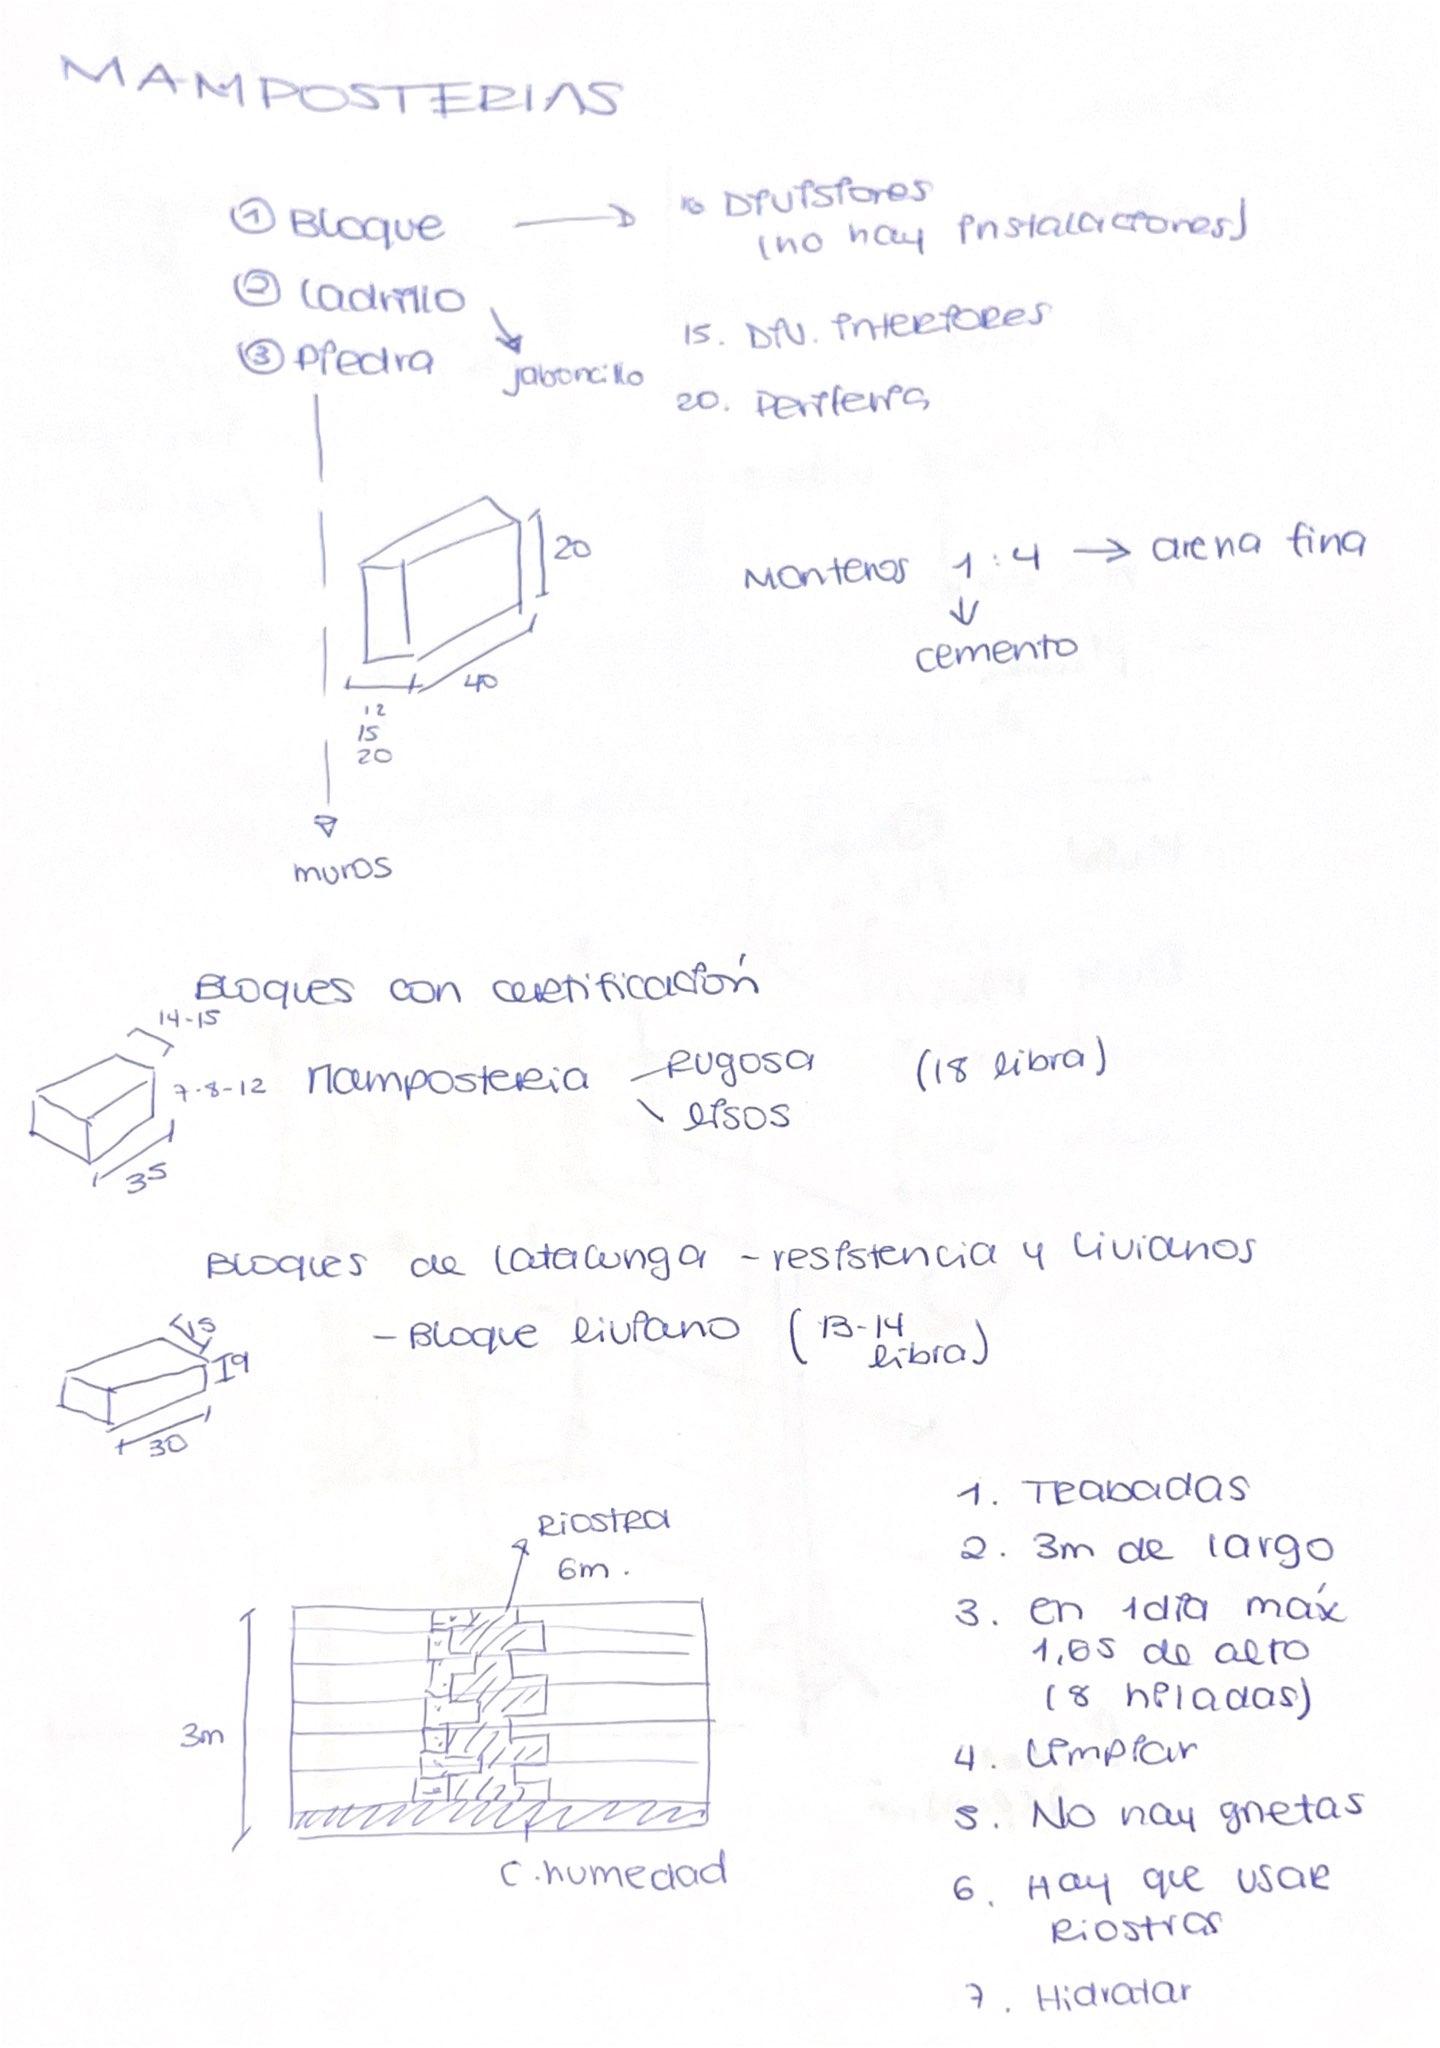 MAMPOSTERIAS
① Bloque
10 Divisiores
(no hay instalaciones)
② Ladrillo
15. Div. interiores
③ Piedra
jaboncillo
20. Periferia
20
40
12
15
20
muros
Monteros 1:4 → arena fina
cemento
Bloques con certificación
14-15
7-8-12
35
Mamposteria
Rugosa
lisos
(18 libra)
Bloques de Latacunga - resistencia y livianos
- Bloque liviano (13-14
libra)
15
19
30
Riostra
6m.
3m
C. humedad
1. Trabadas
2. 3m de largo
3. en 1 día máx
1,65 de alto
(8 hiladas)
4. Limpiar
5. No hay grietas
6. Hay que usar
Riostras
7. Hidratar